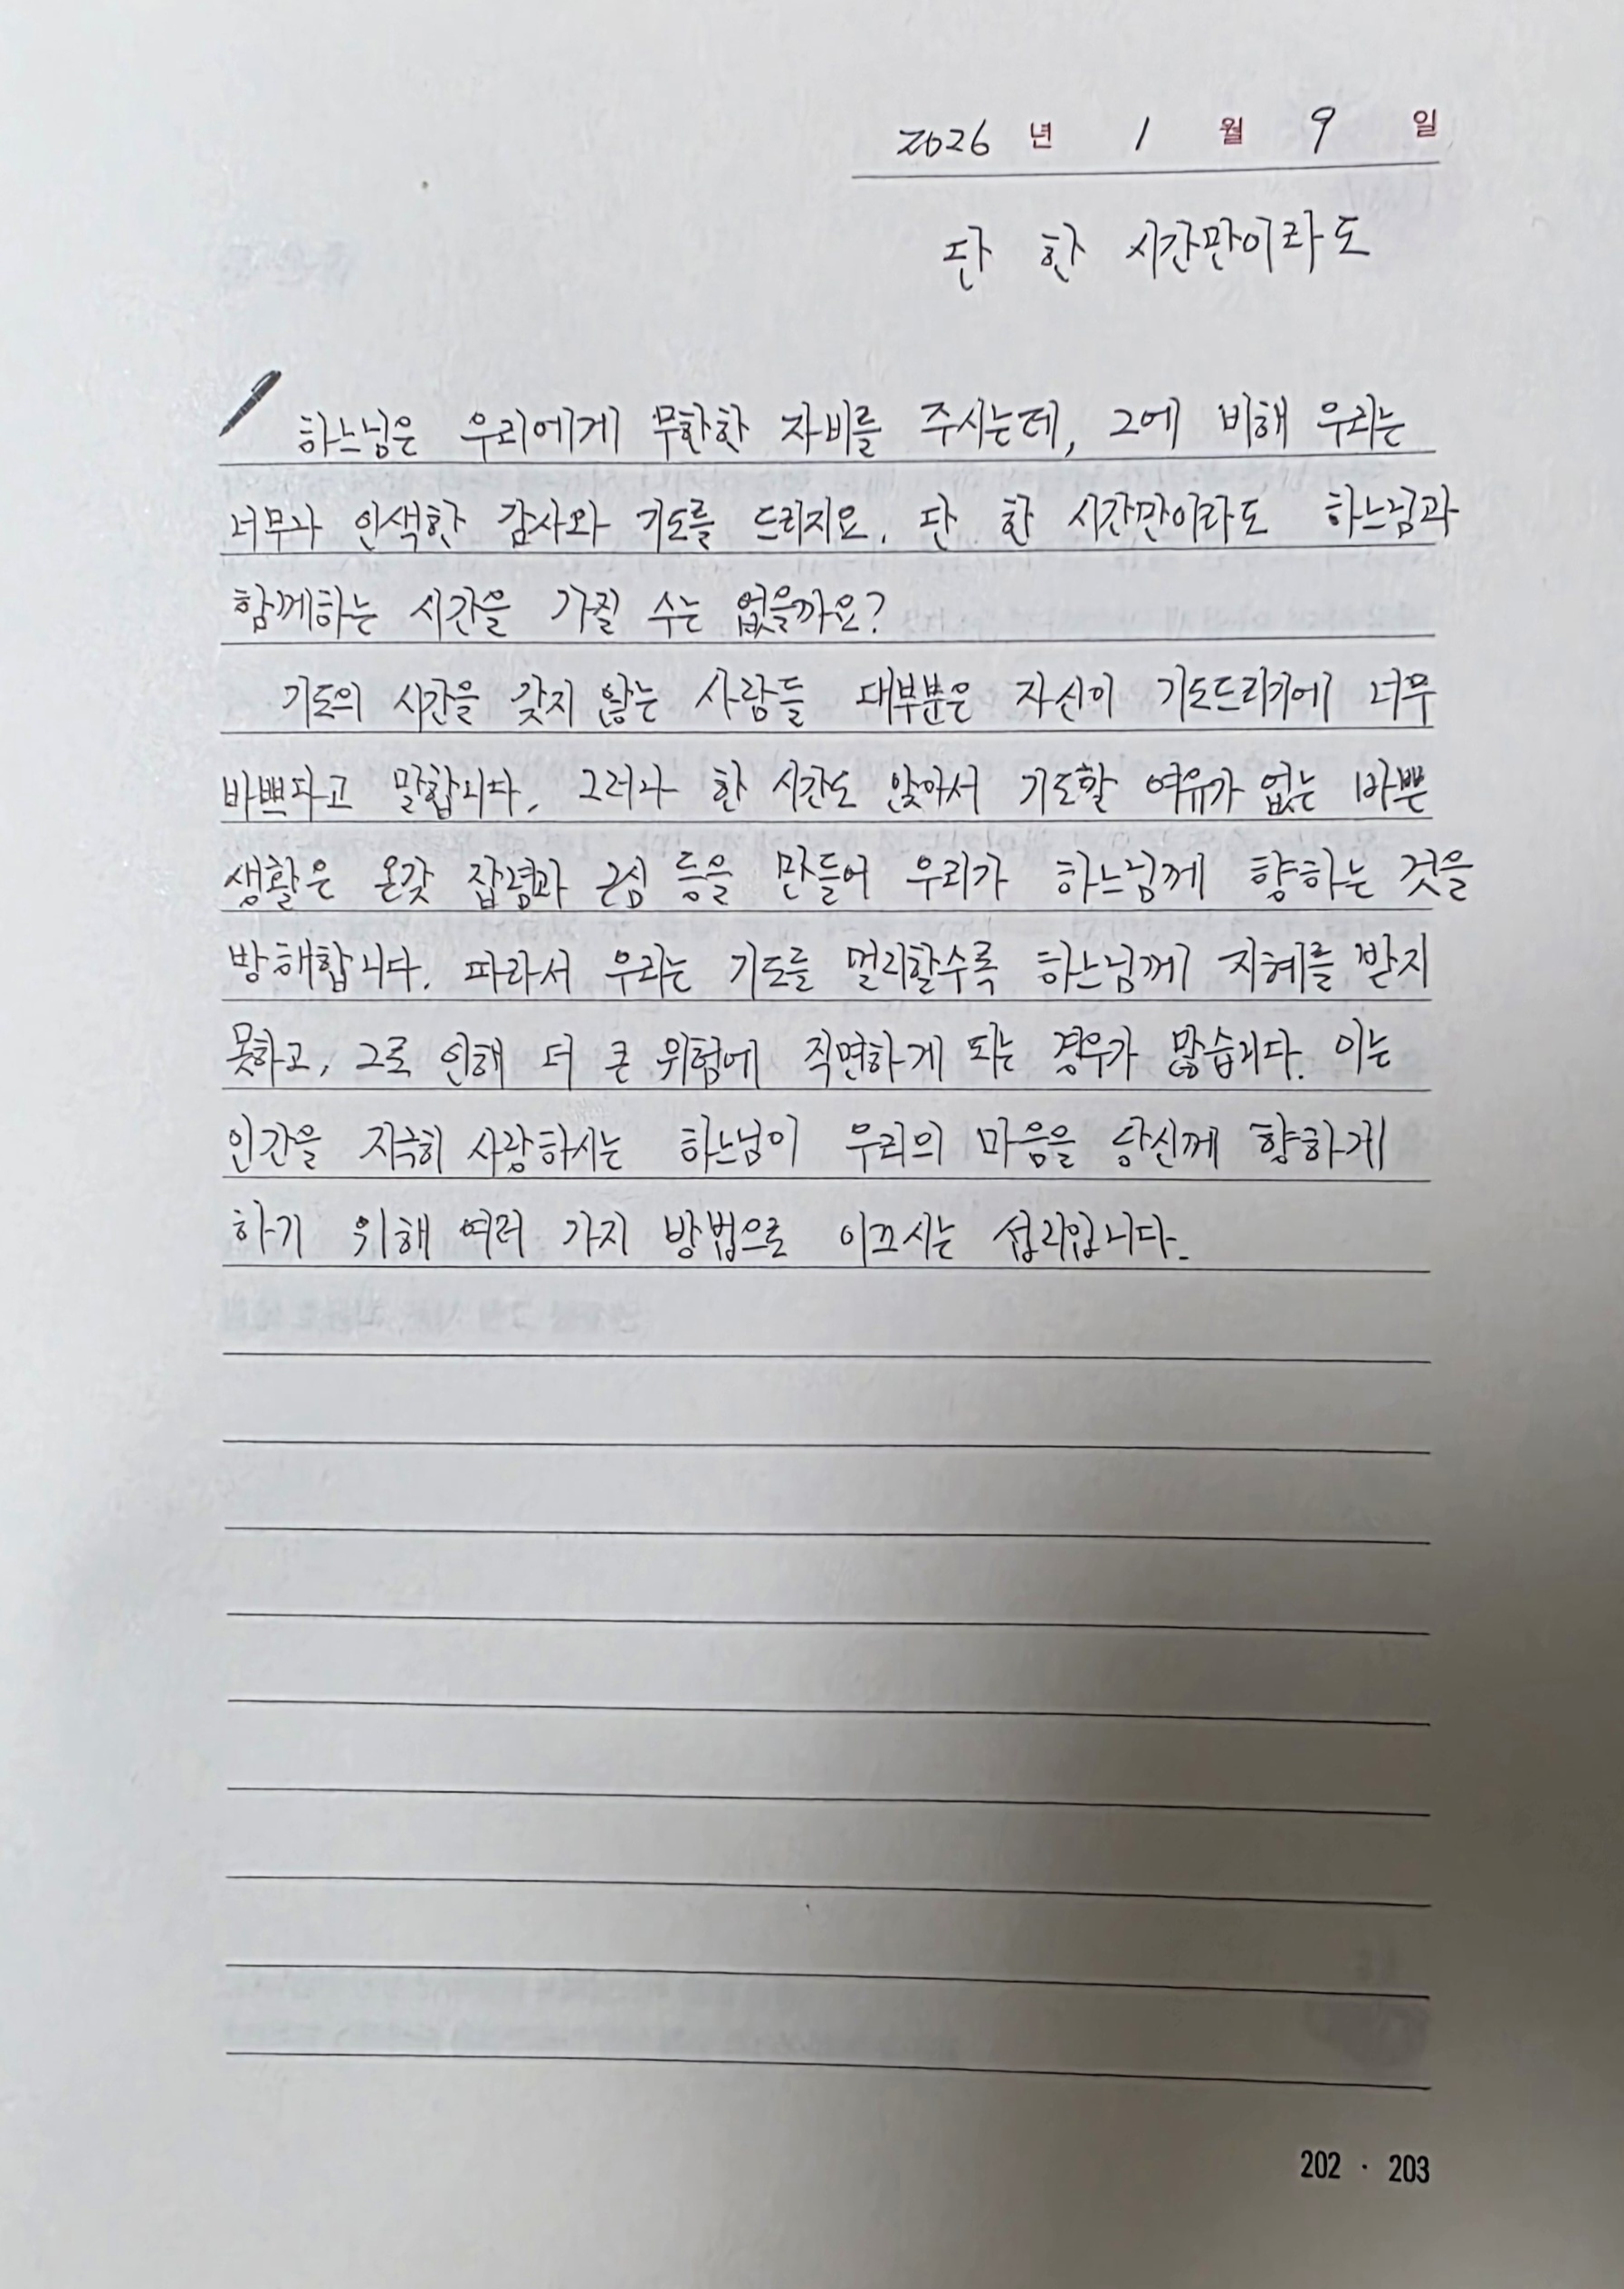 2026 년 1 월 9 일
단 한 시간만이라도
하느님은 우리에게 무한한 자비를 주시는데, 그에 비해 우리는
너무나 인색한 감사와 기도를 드리지요. 단 한 시간만이라도 하느님과
함께하는 시간을 가질 수는 없을까요?
기도의 시간을 갖지 않는 사람들 대부분은 자신이 기도드리기에 너무
바쁘다고 말합니다. 그러나 한 시간도 앉아서 기도할 여유가 없는 바쁜
생활은 온갖 잡념과 근심 등을 만들어 우리가 하느님께 향하는 것을
방해합니다. 따라서 우리는 기도를 멀리할수록 하느님께 지혜를 받지
못하고, 그로 인해 더 큰 위험에 직면하게 되는 경우가 많습니다. 이는
인간을 지극히 사랑하시는 하느님이 우리의 마음을 당신께 향하게
하기 위해 여러 가지 방법으로 이끄시는 섭리입니다.
202 · 203